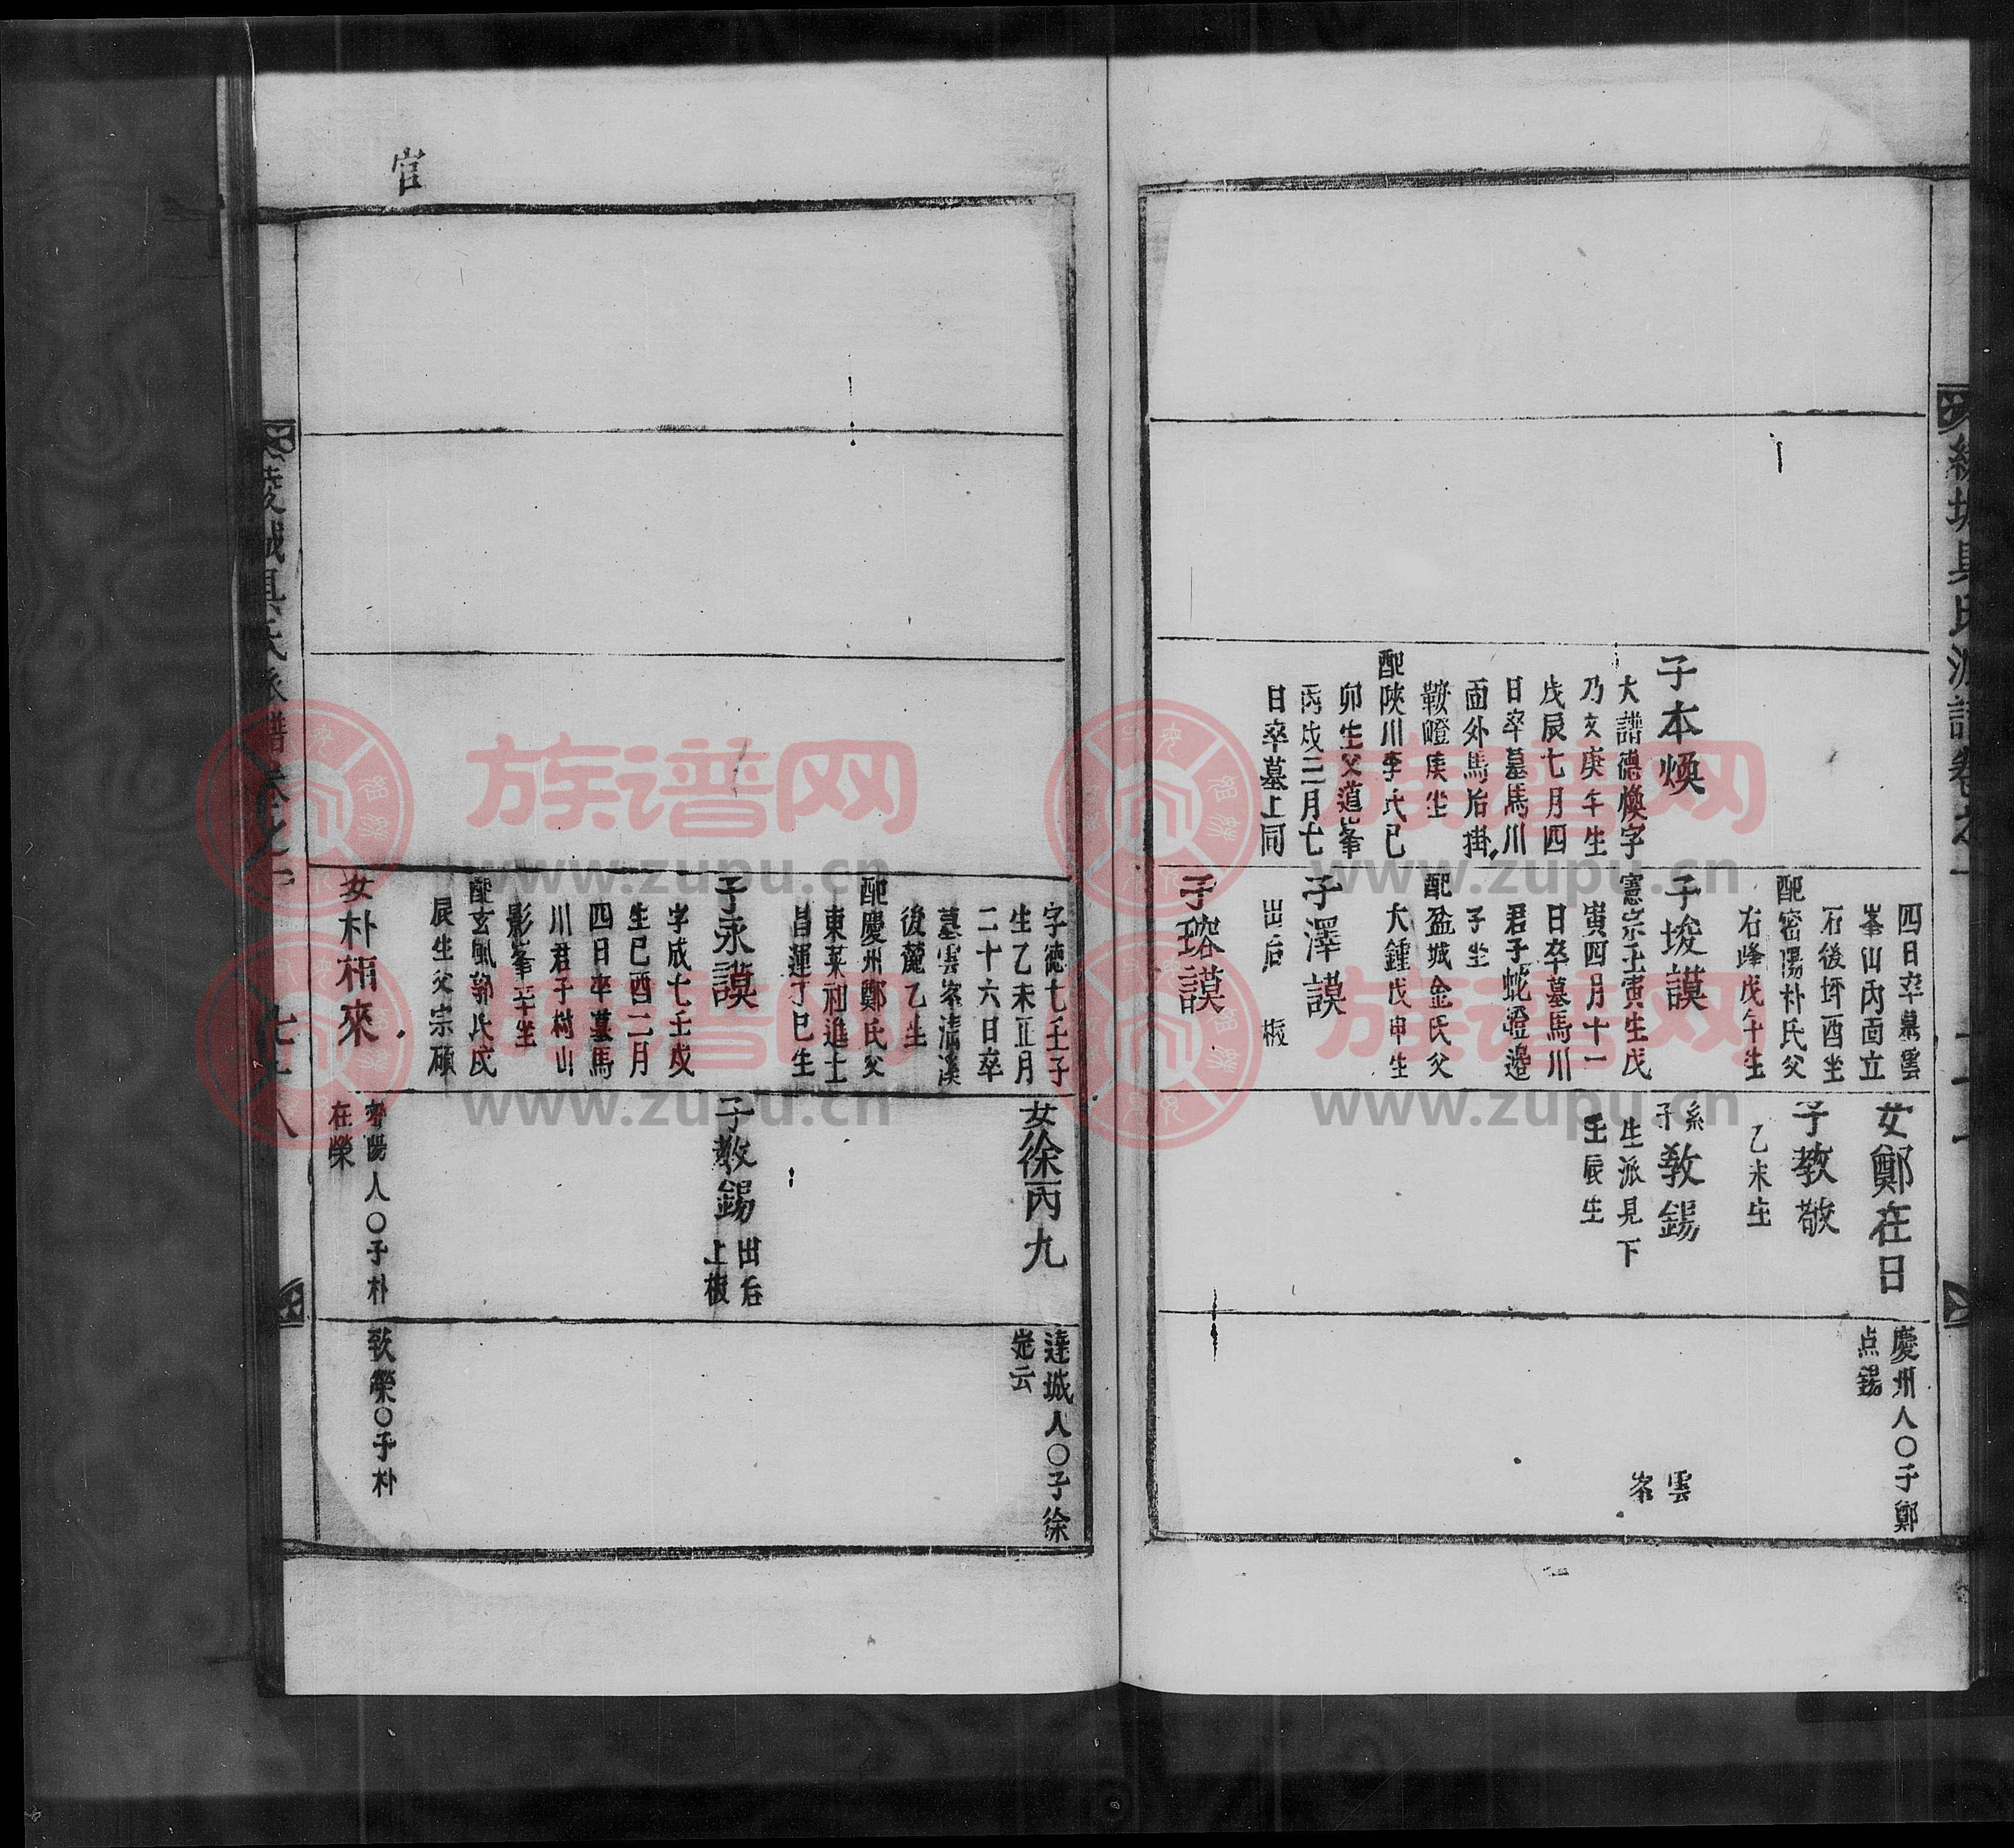 子本煥
大譜德煥字
乃文庚午生
戊辰七月四
日卒墓馬川
面外馬后掛
鞍嶝庚坐
配陜川李氏己
卯生父道峯
丙戌三月七
日卒墓上同
四日卒墓雲
峯山內面立
石後坪酉坐
配密陽朴氏父
右峰戊午生
子埈謨
憲宗壬寅生戊
寅四月十一
日卒墓馬川
君子蛇嶝邊
子坐
配盆城金氏父
大鍾戊申生
子澤謨
出后
板
子瑢謨
女鄭在日
子教敬
乙未生
系子教錫
生派見下
壬辰生
慶州人○子鄭
点錫
雲
峯
字德七壬子
生乙未正月
二十六日卒
墓雲峯淸溪
後麓乙坐
配慶州鄭氏父
東萊祖進士
昌運丁巳生
子永謨
字成七壬戌
生己酉二月
四日卒墓馬
川君子樹山
影峯辛坐
配玄風郭氏戊
辰生父宗碩
女朴相來
女徐丙九
子教錫
出后
上板
密陽人○子朴
在榮
達城人○子徐
云
致榮○子朴
綾城具氏派譜卷之
官
族谱网
www.zupu.cn
族谱网
www.zupu.cn
族谱网
www.zupu.cn
族谱网
www.zupu.cn